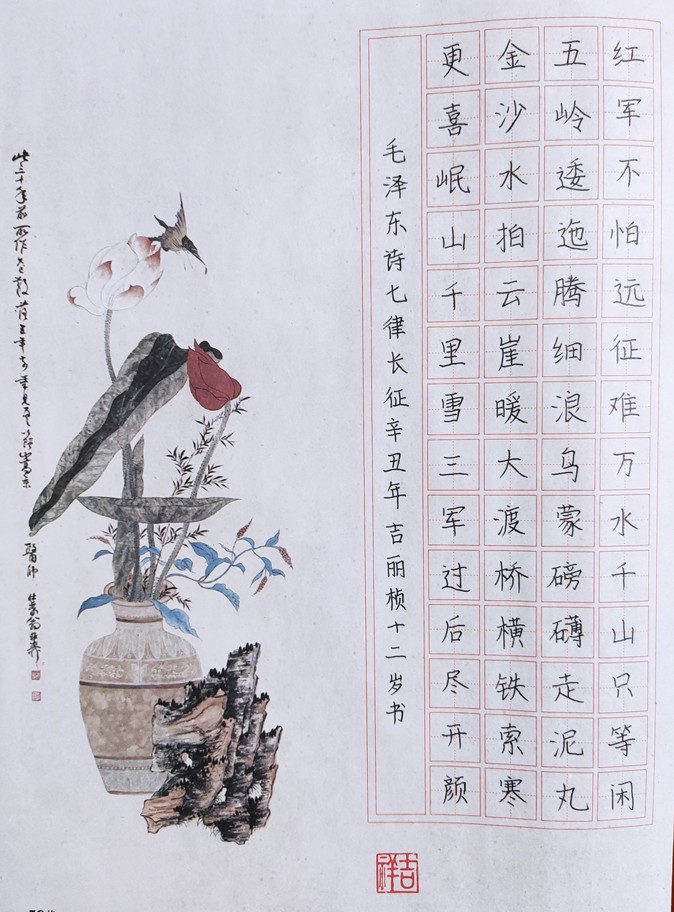 红军不怕远征难万水千山只等闲
五岭逶迤腾细浪乌蒙磅礴走泥丸
金沙水拍云崖暖大渡桥横铁索寒
更喜岷山千里雪三军过后尽开颜
毛泽东诗七律长征辛丑年吉丽桢十二岁书
吉祥
此三十年前所作
醫师